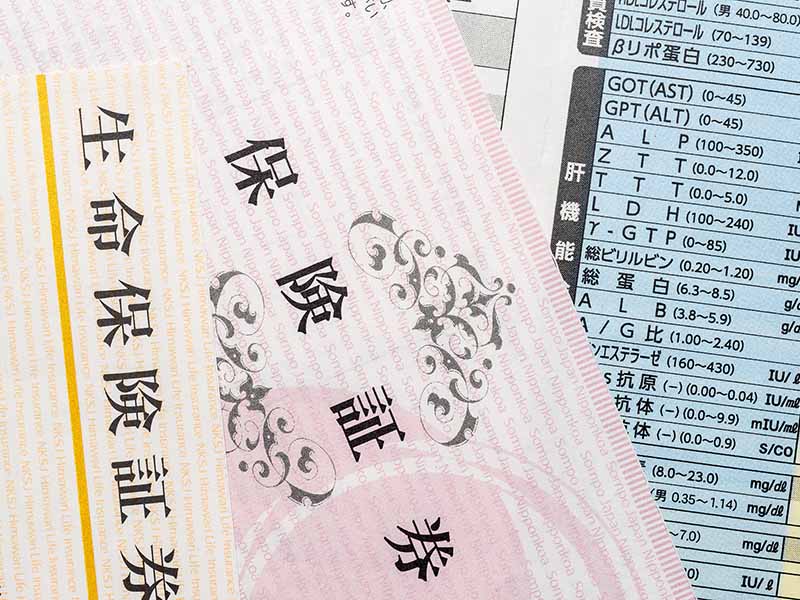 生命保険証券
保険証券
NKSJ Himawari Life Insurance
Sompo Japan Nipponkoa
い
す。
質検査
HDLコレステロール (男 40.0～80.0)
LDLコレステロール (70～139)
βリポ蛋白 (230～730)
肝機能
GOT(AST) (0～45)
GPT(ALT) (0～45)
ALP (100～350)
ZTT (0.0～12.0)
TTT (0.0～5.0)
LDH (100～240) IU
γ-GTP (0～85) IU
総ビリルビン (0.20～1.20) mg/
総蛋白 (6.3～8.5) g/
ALB (3.8～5.9) g/
A/G比 (1.00～2.40)
ンエステラーゼ (160～430) IU/ℓ
s抗原 (−) (0.00～0.04) IU/mℓ
抗体 (−) (0.0～9.9) mIU/mℓ
抗体 (−) (0.0～0.9) S/CO
(8.0～23.0) mg/dℓ
(男 0.35～1.14) mg/dℓ
～7.0) mg/dℓ
0) IU/ℓ